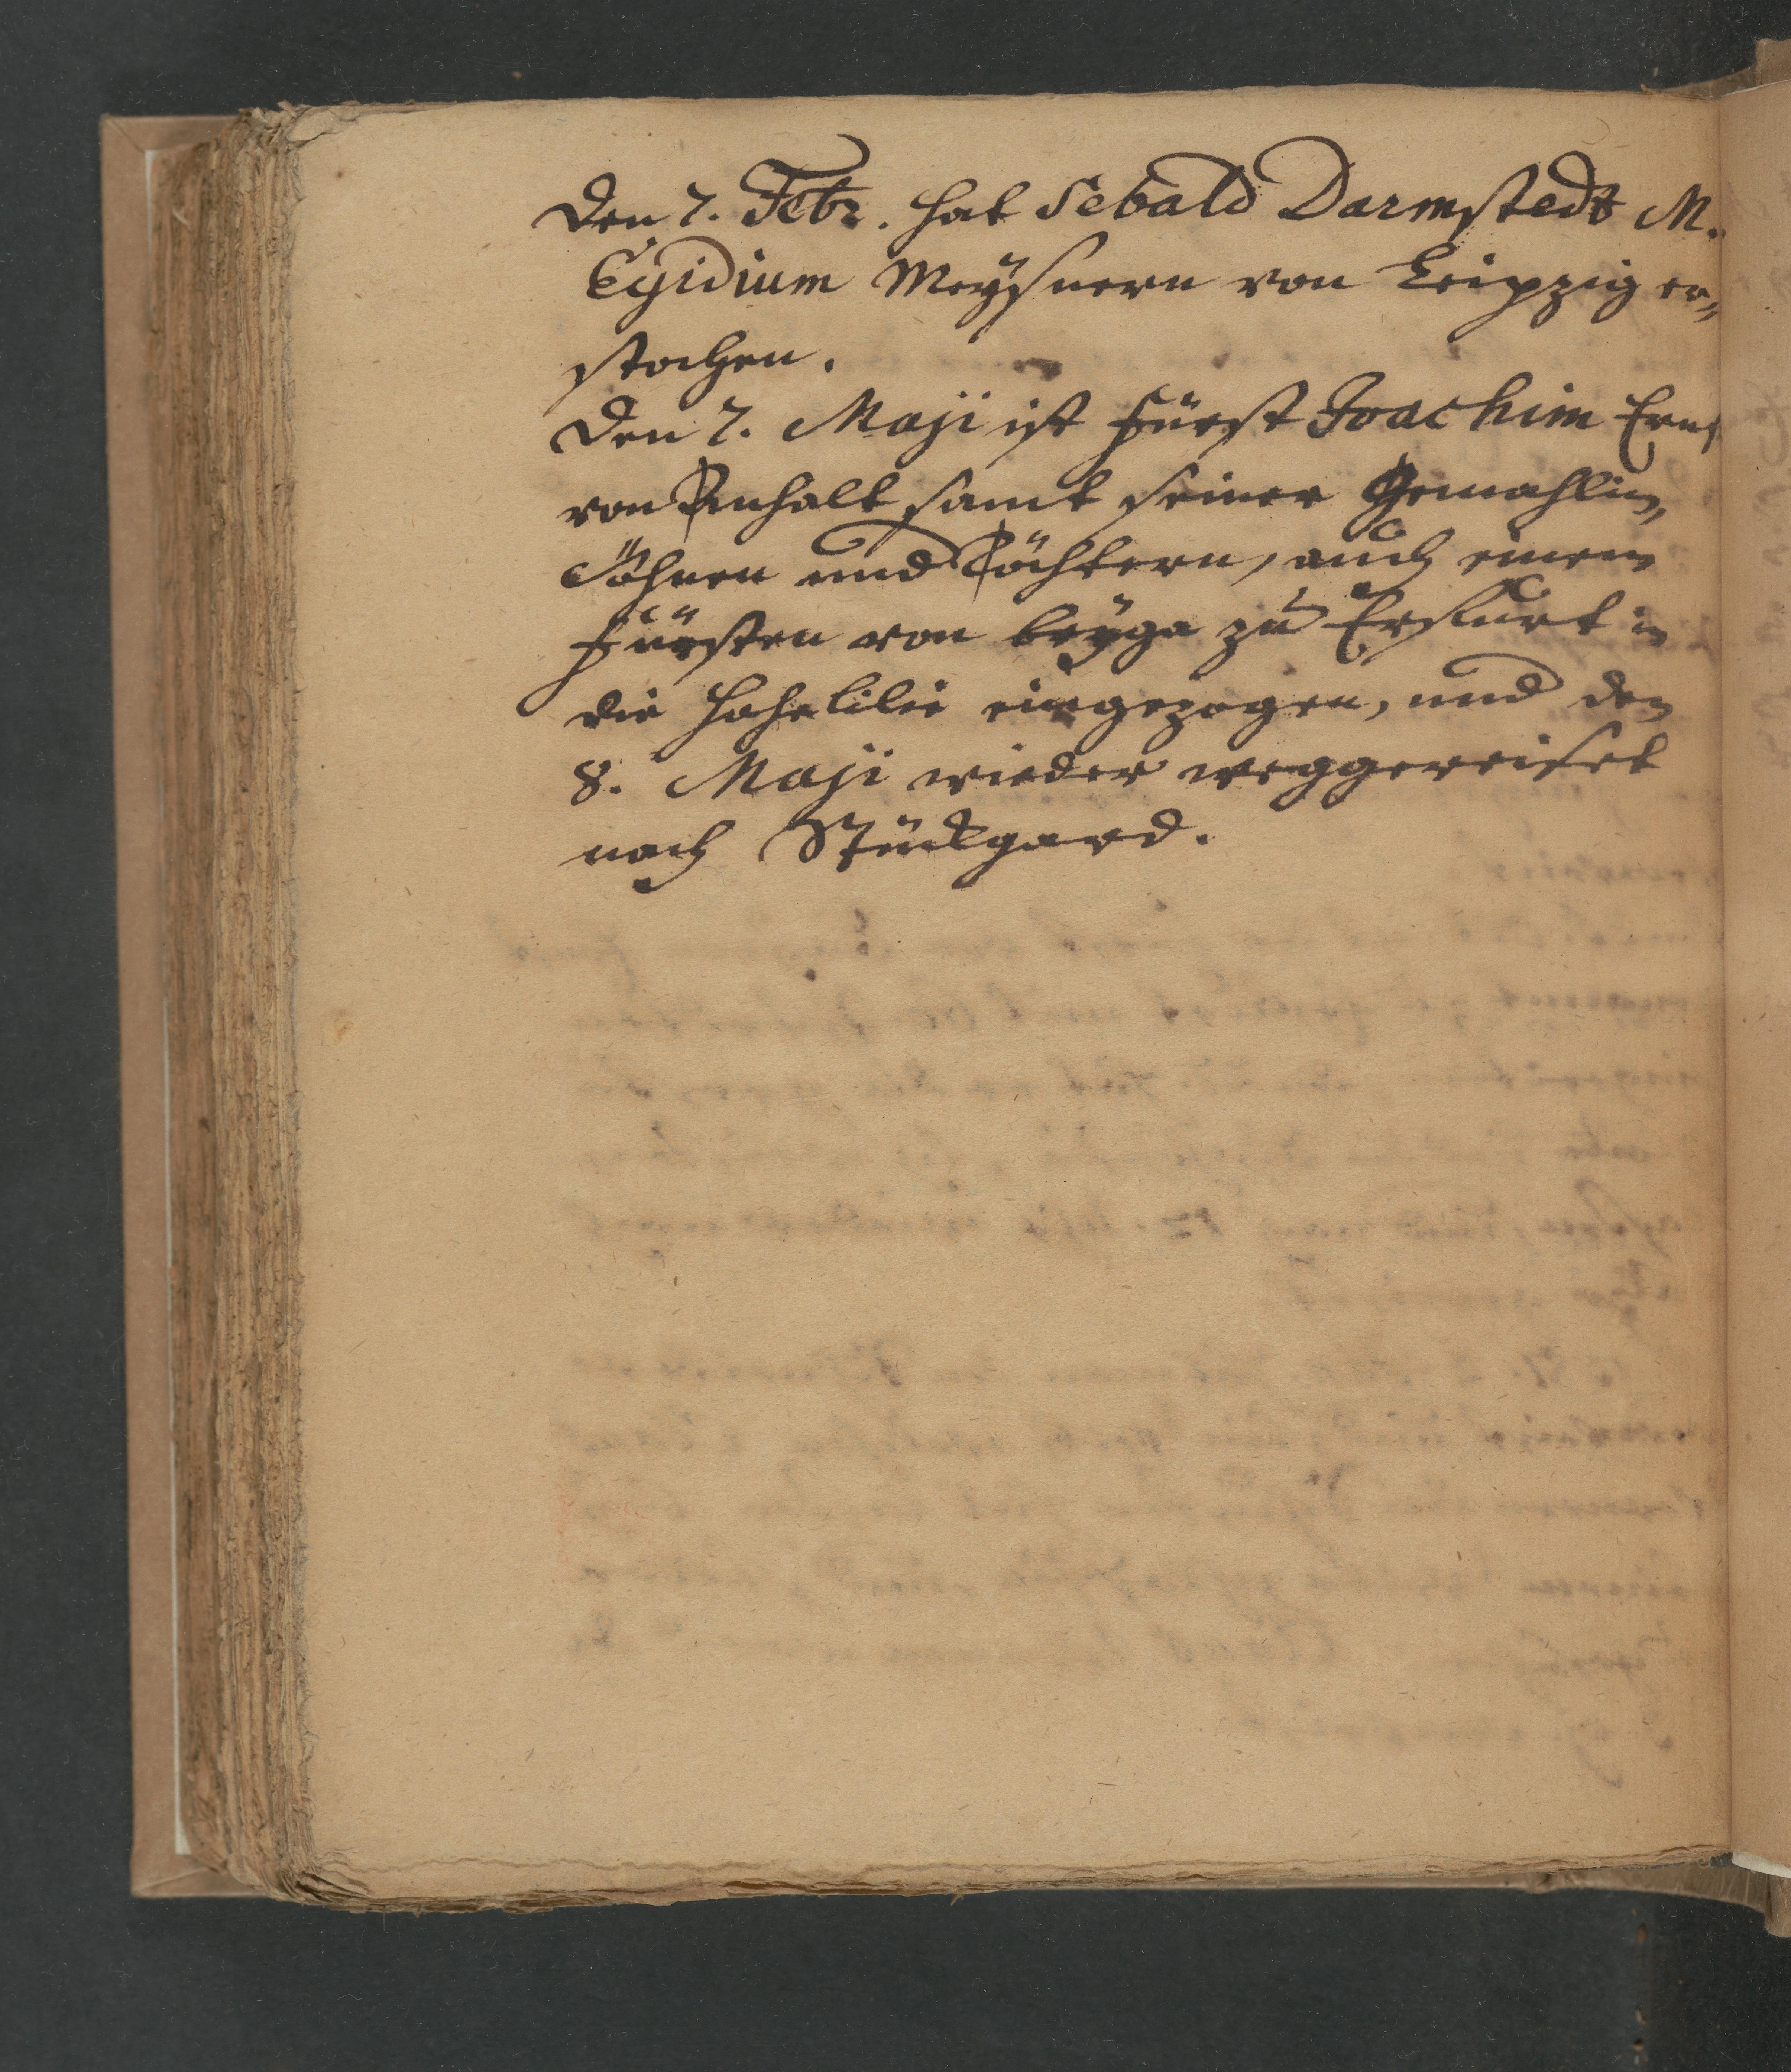 Den 7. Febr. hat Sebald Darmstedt M.
Egidium Meysnern von Leipzig er-
stochen.
Den 7. Maji ist Fürst Joachim Ernst
von Anhalt samt seiner Gemahlin,
Söhnen und Töchtern, auch einem
Fürsten von bryga zu Erffurt in
die Hohelilie eingezogen, und den
8. Maji wieder weggereiset
nach Stückgard.